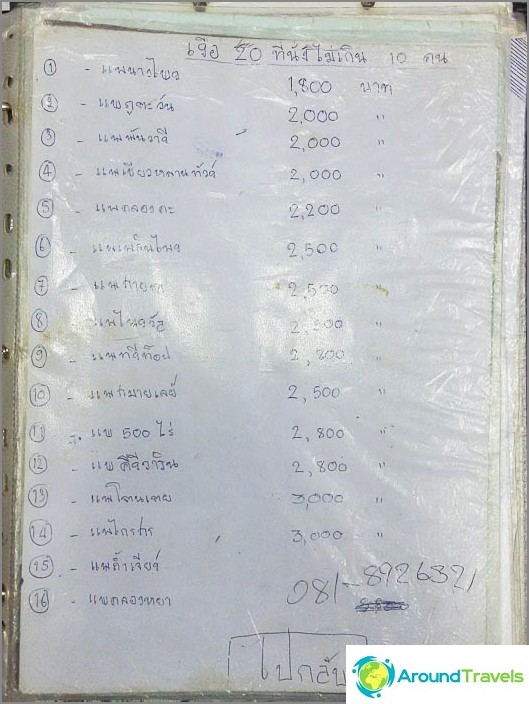 เรือ 20 ที่นั่งไม่เกิน 10 คน
① - แพนางไพร 1,800 บาท
② - แพภูตะวัน 2,000 "
③ - แพพันวารี 2,000 "
④ - แพเชี่ยวหลานทัวร์ 2,000 "
⑤ - แพคลองคะ 2,200 "
⑥ - แพเพลินไพร 2,500 "
⑦ - แพสายชล 2,500 "
⑧ - "
⑨ - 2,800 "
⑩ - แพสมายเลย์ 2,500 "
⑪ - แพ 500 ไร่ 2,800 "
⑫ - แพคีรีวาริน 2,800 "
⑬ - แพโตนเตย 3,000 "
⑭ - แพไกรสร 3,000 "
⑮ - แพถ้ำเจียร์
⑯ - แพคลองหยา
081-8926321
ไปกลับ
AroundTravels